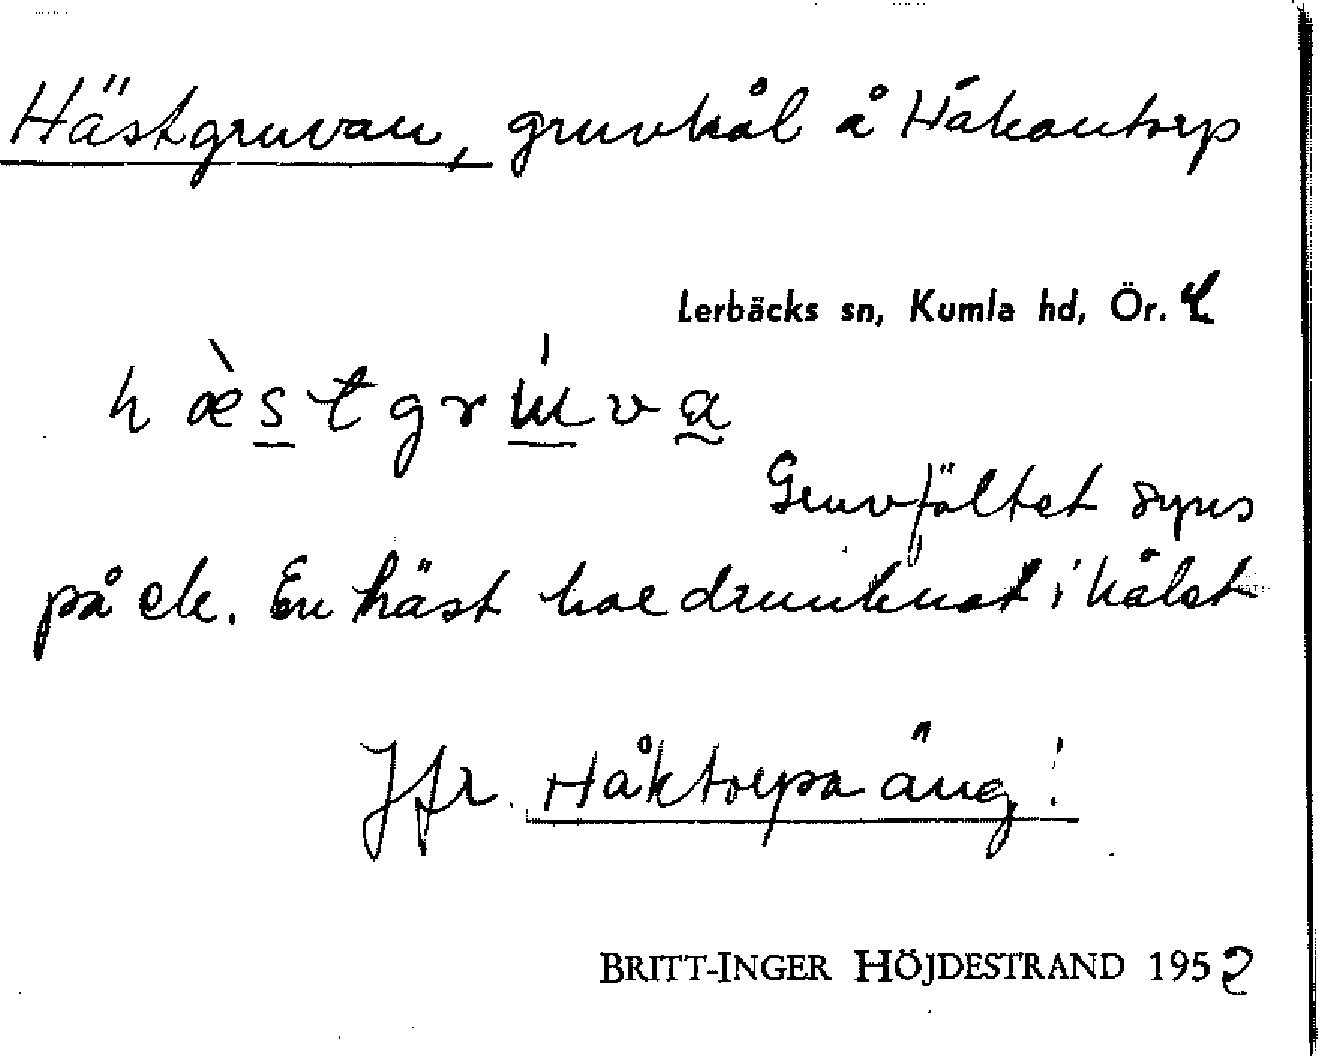 Hästgruvan, gruvhål å Håkantorp
Lerbäcks sn, Kumla hd, Ör. L
hæ̀stgrúva
Gruvfältet syns
på ek. En häst har drunknat i hålet
Jfr. Håktorpa äng!
BRITT-INGER HÖJDESTRAND 1952